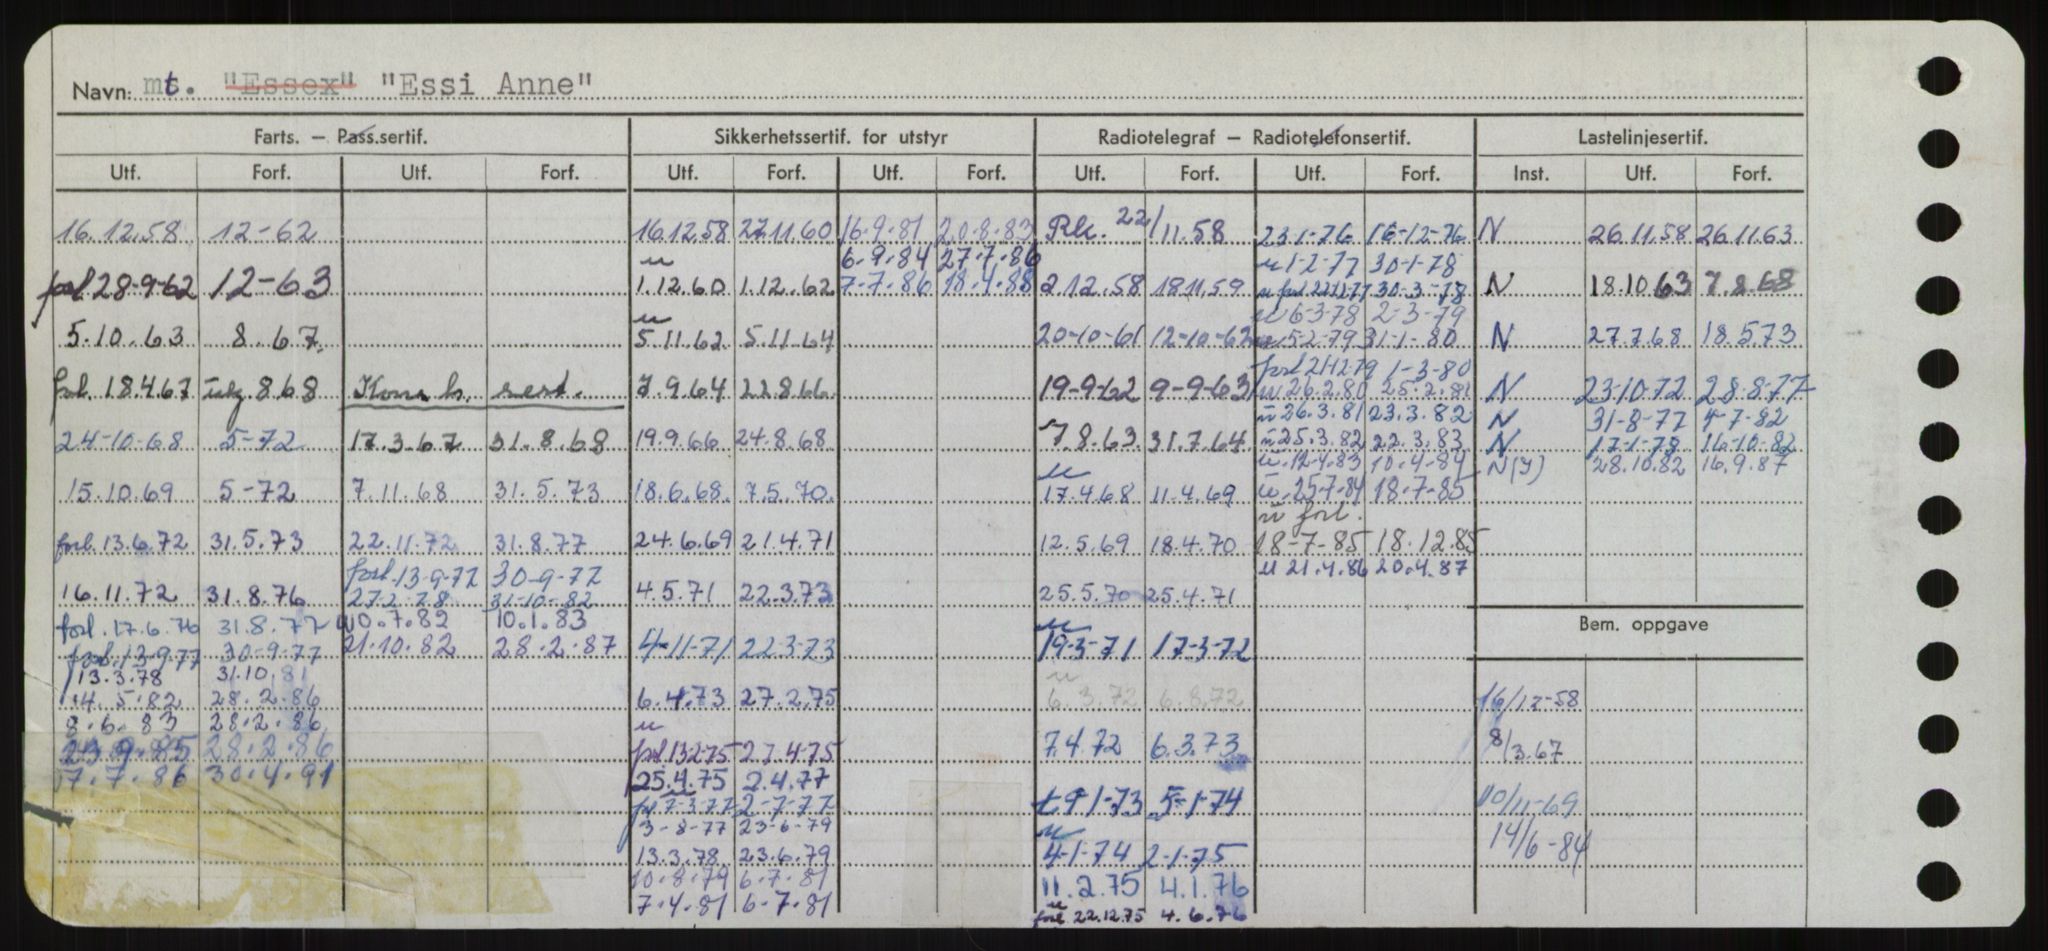 Navn: mt. "Essex" "Essi Anne"
Farts. — Pass.sertif. Sikkerhetssertif. for utstyr Radiotelegraf — Radiotelefonsertif. Lastelinjesertif.
Utf. Forf. Utf. Forf. Utf. Forf. Utf. Forf. Utf. Forf. Utf. Forf. Inst. Utf. Forf.
16.12.58 12-62 16.12.58 27.11.60 16.9.81 20.8.83 Rk. 22/11.58 23.1-76 16-12-76 N 26.11.58 26.11.63
u 6.9.84 27.7.86 u 1-2-77 30-1-78
forl 28-9-62 12-63 1.12.60 1.12.62 7-7.86 18.4.88 2.12.58 18.11.59 u forl 22.12.77 30-3-78 N 18.10.63 7.8.68
u u 6-3-78 2-3-79
5.10.63 8.67. 5.11.62 5.11.64 20-10-61 12-10-62 u 5-2-79 31-1-80 N 27.7.68 18.5.73
forl 21.12.79 1-3-80
forl. 18.4.67 8.68 Konv. b. sert. 7.9.64 22.8.66 19-9-62 9-9-63 u 26.2.80 25.2.81 N 23-10-72 28-8-77
u 26.3.81 23.3.82 N 31-8-77 4-7-82
24-10-68 5-72 17.3.67 31.8.68 19.9.66 24.8.68 7.8.63 31.7.64 u 25.3.82 22.3.83 N 17-1-78 16-10-82
u u. 12.4.83 10.4.84 N(I) 28.10.82 16.9.87
15.10.69 5-72 7.11.68 31.5.73 18.6.68. 7.5.70. 17.4.68 11.4.69 u. 25-7-84 18-7-85
u forl.
forl. 13.6.72 31.5.73 22.11.72 31.8.77 24.6.69 21.4.71 12.5.69 18.4.70 18-7-85 18.12.85
forl. 13-9-77 30-9-77 u 21.4.86 20.4.87
16.11.72 31.8.76 27.2.78 31-10-82 4.5.71 22.3.73 25.5.70 25.4.71
forl. 17.6.76 31.8.77 0.7.82 10.1.83 u Bem. oppgave
forl. 13-9-77 30-9-77 21.10.82 28.2.87 4-11-71 22.3.73 19-3-71 17-3-72
13.3.78 31.10.81 u
14.5.82 28.2.86 6.4.73 27.2.75 6.3.72 6.8.72 16/12-58
8.6.83 28.2.86 u
23.9.85 28.2.86 forl 13.2.75 27.4.75 7.4.72 6.3.73 8/3.67
7.7.86 30.4.91 25.4.75 2.4.77
u
forl 7-3-77 2-7-77 19-1-73 5-1-74 10/11-69
3-8-77 23-6-79 u
13.3.78 23.6.79 4-1-74 2-1-75 14/6-84
10.8.79 6.7.81 11.2.75 4.1.76
u
7.4.81 6.7.81 forl 22.12.75 4.6.76